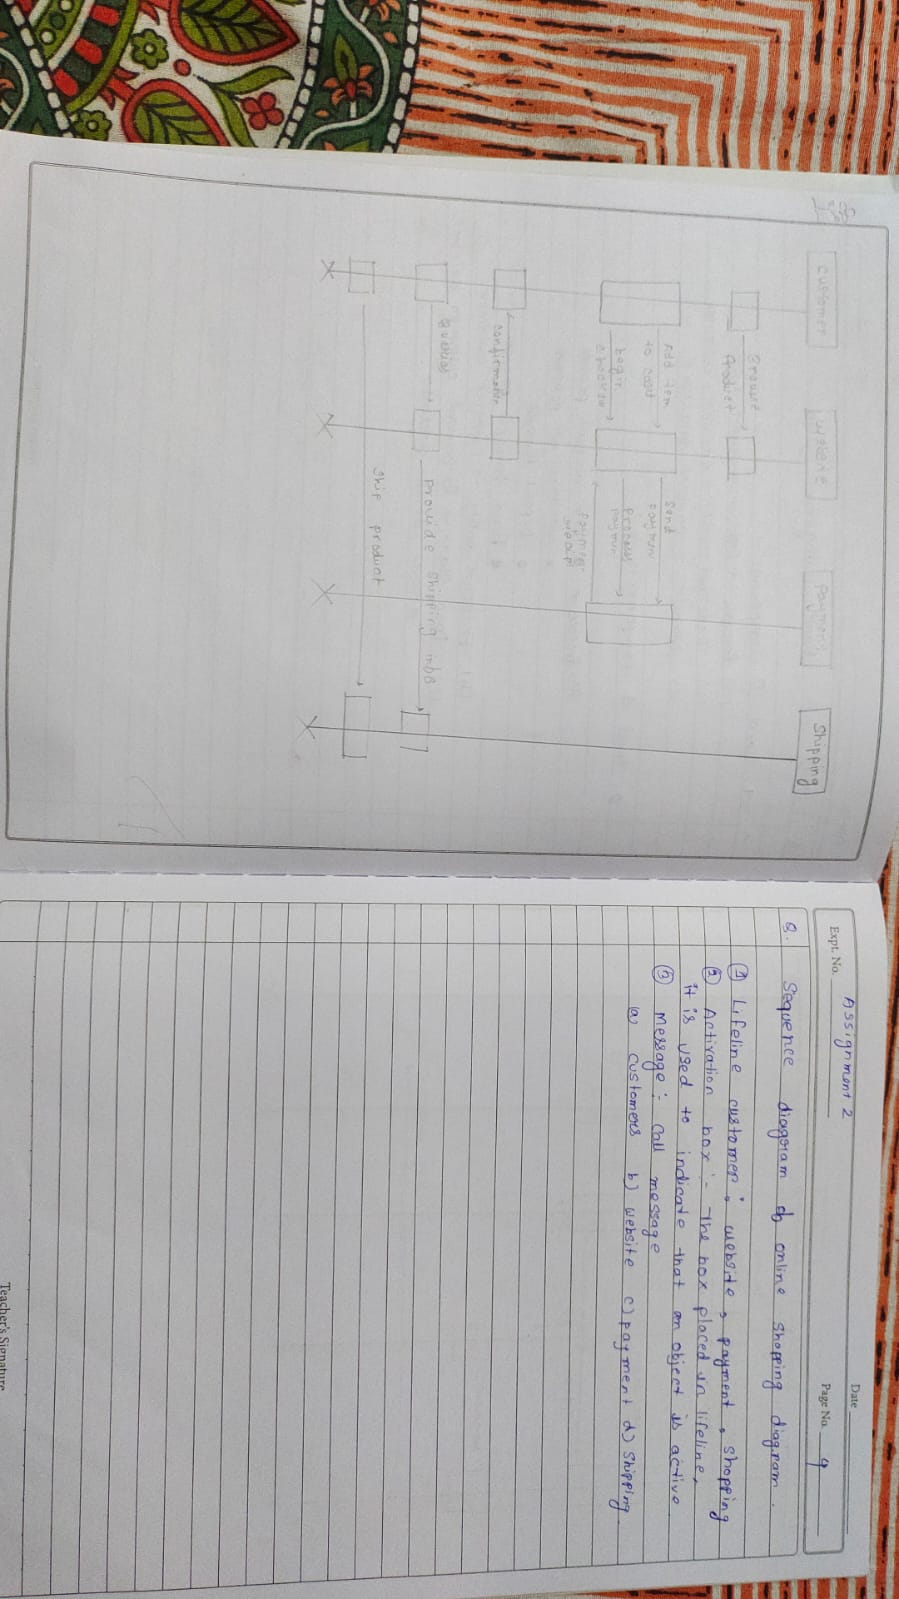 customer website payment Shipping
Browse
Product
Add item
to cart
Send
paymen
begin
checkou
Process
paymen
Paymen
confirmation
Provide Shipping info
Ship product
Assignment 2
Date
Expt. No.
Page No. 4
Q. Sequence diagram of online Shopping diagram.
① Lifeline customer : website, payment, shopping
② Activation box :- The box placed in lifeline,
it is used to indicate that an object is active
③ Message :- Call message
(a) customers b) website c) payment d) Shipping
Teacher's Signature